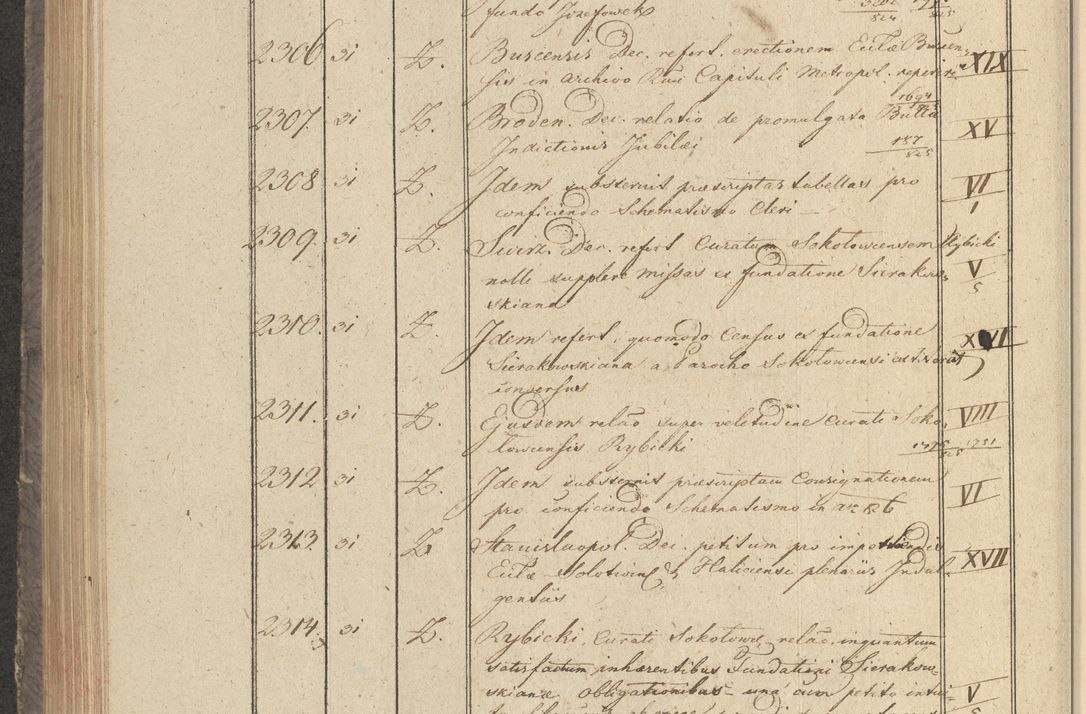 fundo Jozefowek
824 825
2306 31 Z. Buscensis Dec. refert. erectionem Eccłae Buscen-
sis in archivo Rmi Capituli Metropol. reperiri XIX
1694
825
2307. 31 Z. Broden. Dec. relatio de promulgata Bulla XV
Indictionis Jubilæi 157
825
2308 31 Z. Idem substernit præscriptas tabellas pro VI
conficiendo Schematismo Cleri — 1
2309. 31 Z. Swirz. Dec. refert Curatum Sokołowiensem Rybicki
nolle supplere missas ex fundatione Sierakow- V
skiana 5
2310. 31 Z. Idem refert, quomodo Census ex fundatione XVII
Sierakowskiana a Parocho Sokołowiensi
conversus
2311. 31 Z. Ejusdem relão super veletudine curati Soko- VIII
łowiensis Rybicki 1775 1751
825
2312 31 Z. Idem substernit præscriptam Consignationem VI
pro conficiendo Schematismo in 826
2313. 31 Z. Stanislaopol. Dec. petitum pro
Ecclæ Solotwinen & Haliciensi plenariis Indul- XVII
gentiis
2314. 31 Z. Rybicki, Curati Sokołowien relão, inquantum
satisfactum inhærentibus Fundationi Sierakow-
skianæ obligationibus — una cum petito intui- V